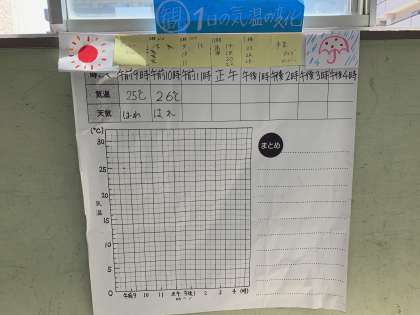 週 1日の気温の変化
午前9時 午前10時 午前11時 正午 午後1時 午後2時 午後3時 午後4時
気温 25℃ 26℃
天気 はれ はれ
(℃)
まとめ
30
25
20
15
10
5
0
気温
午前9 10 11 正午 午後1 2 3 4 (時)